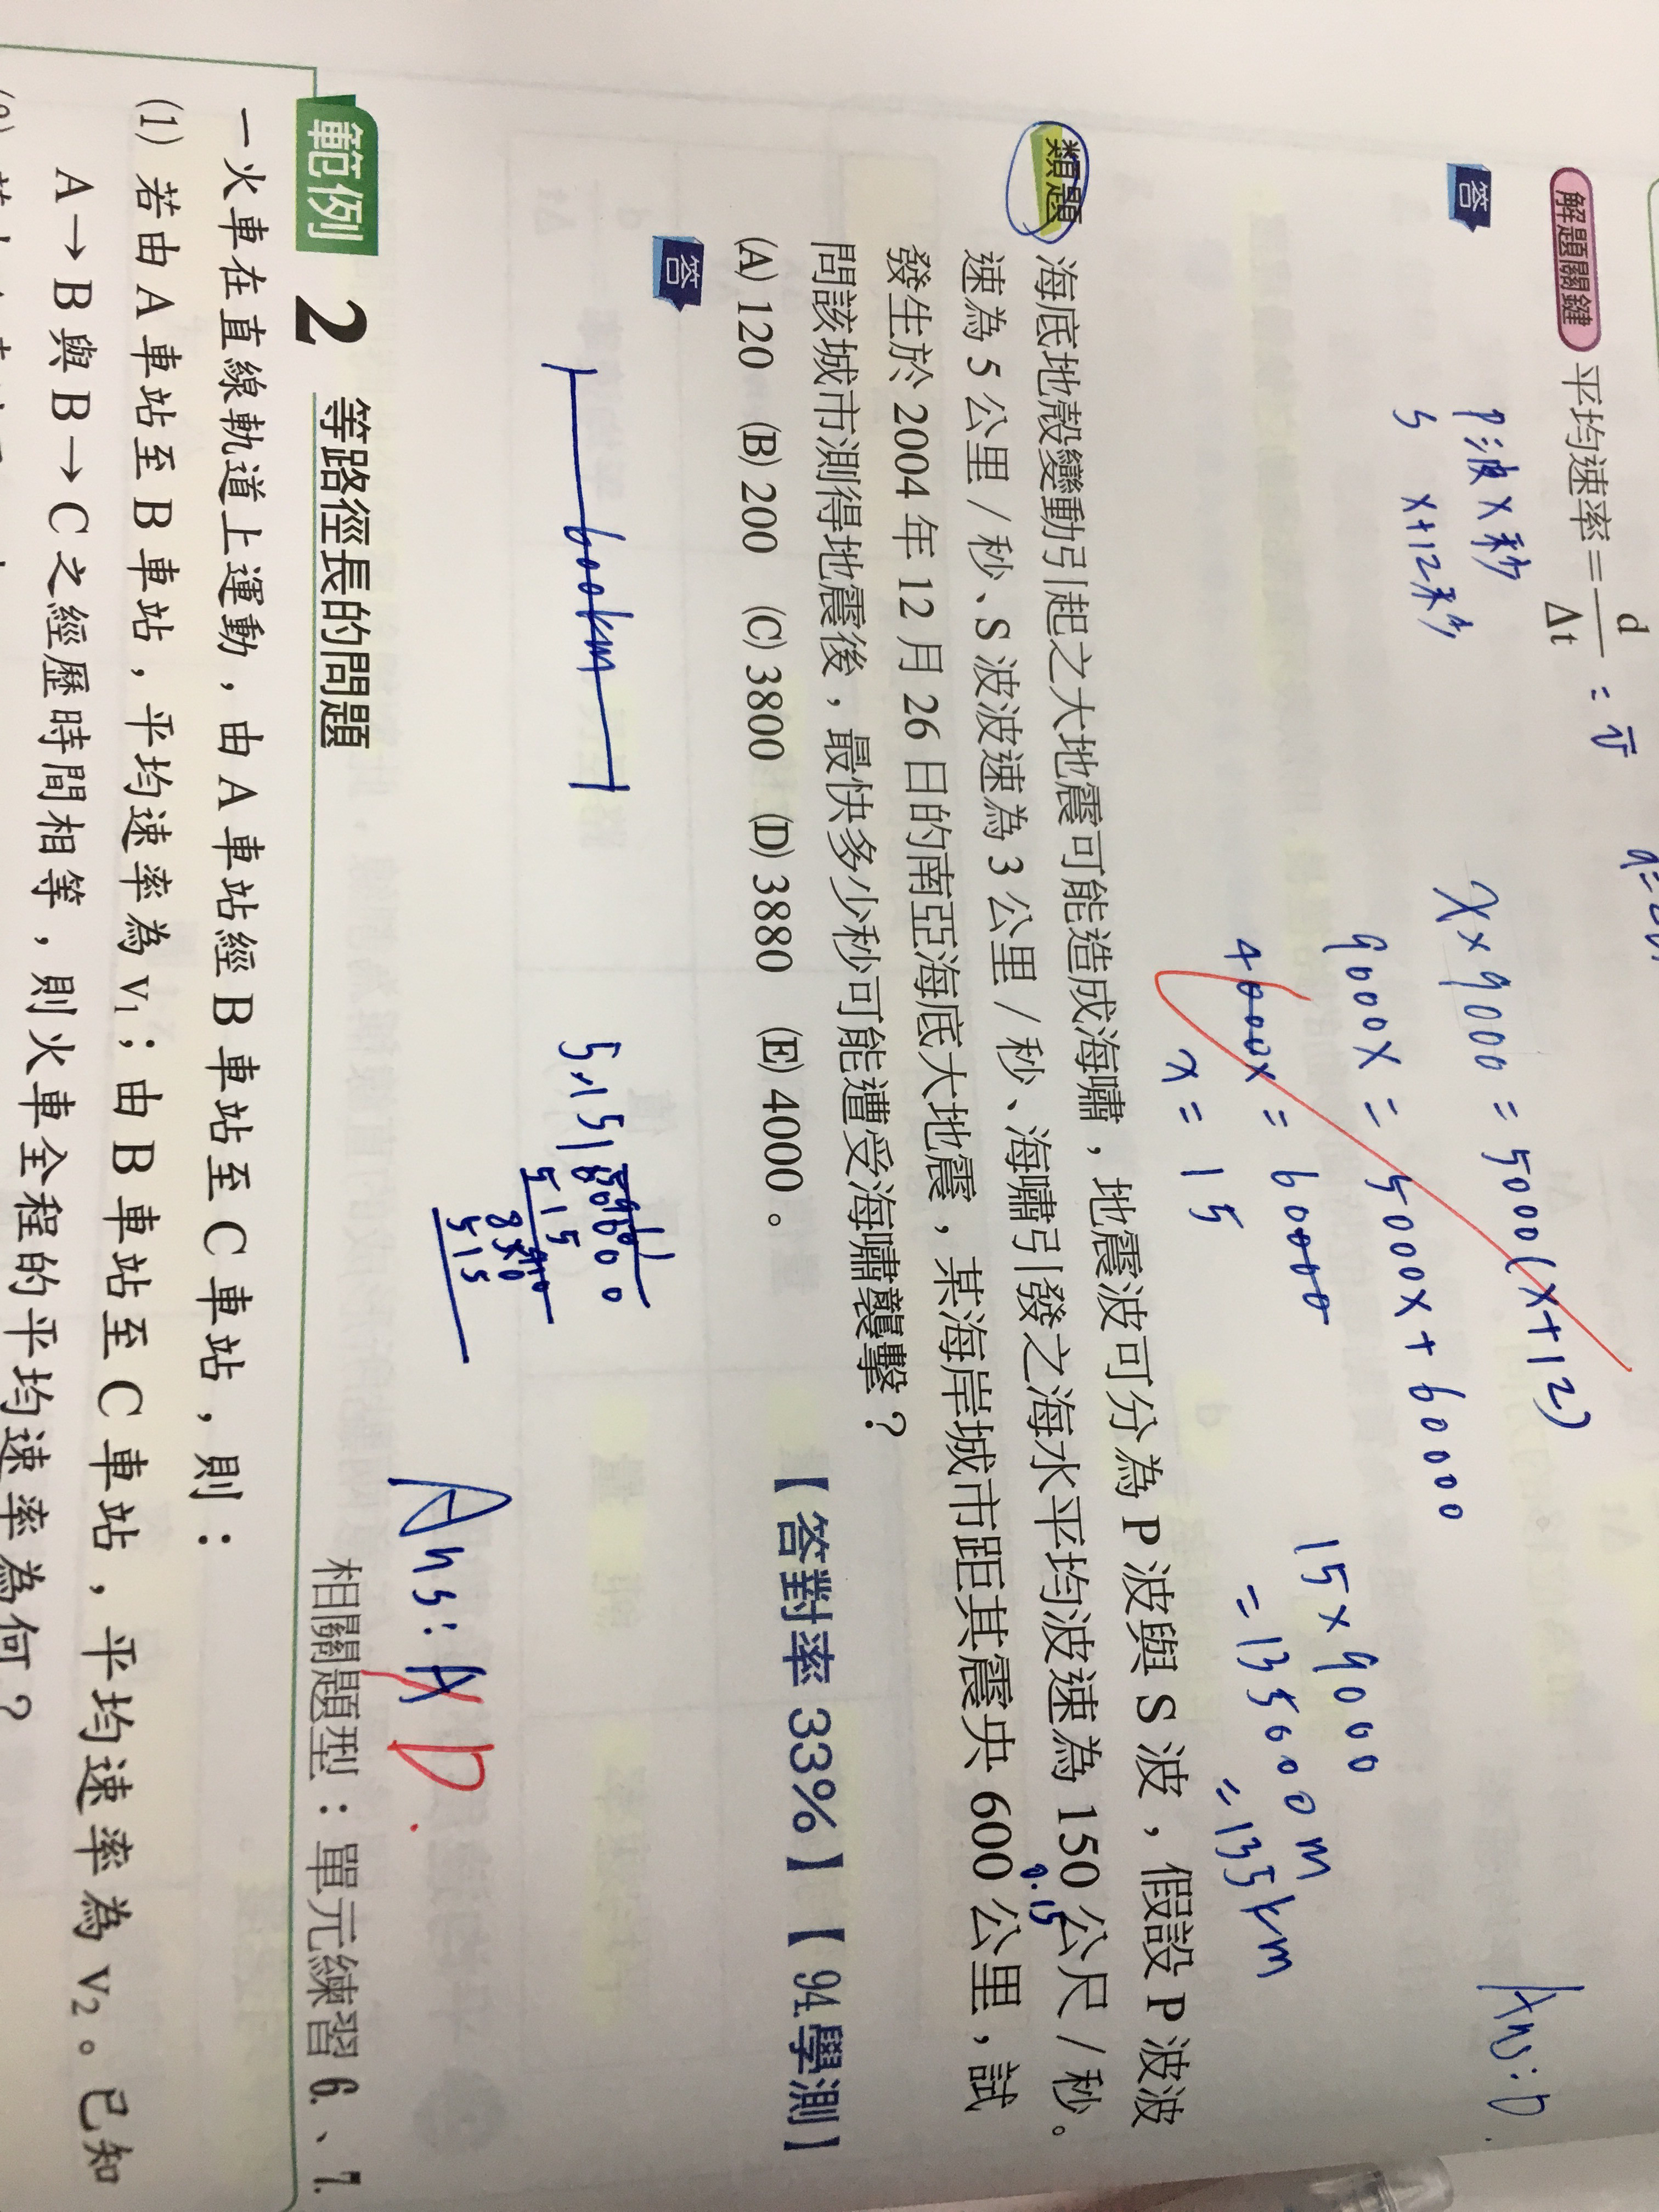 解題關鍵 平均速率=d/Δt = v̄
答
P波 x秒
S x+12秒
x×9000 = 5000(x+12)
9000x = 5000x+60000
4000x = 60000
x = 15
15×9000
=135000m
=135km
Ans:D
類題 海底地殼變動引起之大地震可能造成海嘯，地震波可分為 P 波與 S 波，假設 P 波波
速為 5 公里/秒、S 波波速為 3 公里/秒、海嘯引發之海水平均波速為 150 公尺/秒。
0.15
發生於 2004 年 12 月 26 日的南亞海底大地震，某海岸城市距其震央 600 公里，試
問該城市測得地震後，最快多少秒可能遭受海嘯襲擊？
(A) 120 (B) 200 (C) 3800 (D) 3880 (E) 4000。
【答對率 33%】【94.學測】
答
600km
5.15
515
515
Ans: A D
範例 2 等路徑長的問題
相關題型：單元練習 6.、7.
一火車在直線軌道上運動，由 A 車站經 B 車站至 C 車站，則：
(1) 若由 A 車站至 B 車站，平均速率為 v₁；由 B 車站至 C 車站，平均速率為 v₂。已知
A→B 與 B→C 之經歷時間相等，則火車全程的平均速率為何？